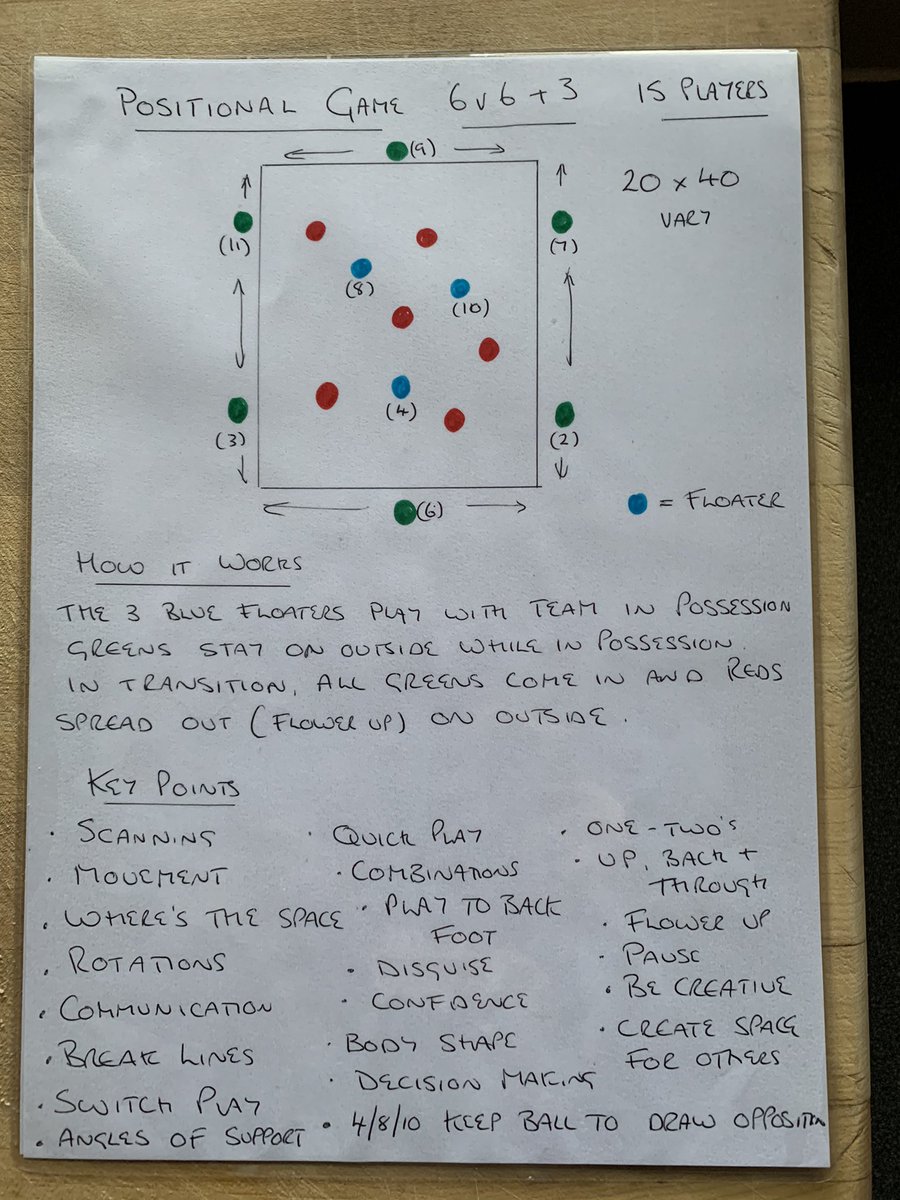 POSITIONAL GAME 6v6+3 15 PLAYERS
(9)
20 x 40
VARY
(11)
(7)
(8)
(10)
(4)
(3)
(2)
(6)
= FLOATER
HOW IT WORKS
THE 3 BLUE FLOATERS PLAY WITH TEAM IN POSSESSION
GREENS STAY ON OUTSIDE WHILE IN POSSESSION.
IN TRANSITION, ALL GREENS COME IN AND REDS
SPREAD OUT (FLOWER UP) ON OUTSIDE.
KEY POINTS
· SCANNING
· MOVEMENT
· WHERE'S THE SPACE
· ROTATIONS
· COMMUNICATION
· BREAK LINES
· SWITCH PLAY
· ANGLES OF SUPPORT
· QUICK PLAY
· COMBINATIONS
· PLAY TO BACK
FOOT
· DISGUISE
· CONFIDENCE
· BODY SHAPE
· DECISION MAKING
· 4/8/10 KEEP BALL TO DRAW OPPOSITION
· ONE-TWO'S
· UP, BACK +
THROUGH
· FLOWER UP
· PAUSE
· BE CREATIVE
· CREATE SPACE
FOR OTHERS